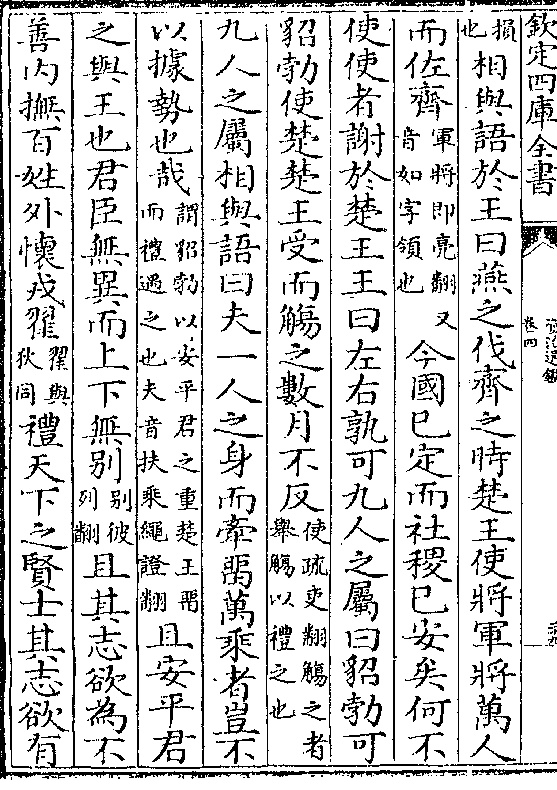 欽定四庫全書
卷四
損也相與語於王曰燕之伐齊之時楚王使將軍將萬人
而佐齊軍將即亮翻又音如字領也今國已定而社稷已安矣何不
使使者謝於楚王王曰左右孰可九人之屬曰貂勃可
貂勃使楚楚王受而觴之數月不反使疏吏翻觴之者舉觴以禮之也
九人之屬相與語曰夫一人之身而牽留萬乘者豈不
以據勢也哉謂貂勃以安平君之重楚王留而禮遇之也夫音扶乘繩證翻且安平君
之與王也君臣無異而上下無别别彼列翻且其志欲為不
善内撫百姓外懷戎翟翟與狄同禮天下之賢士其志欲有